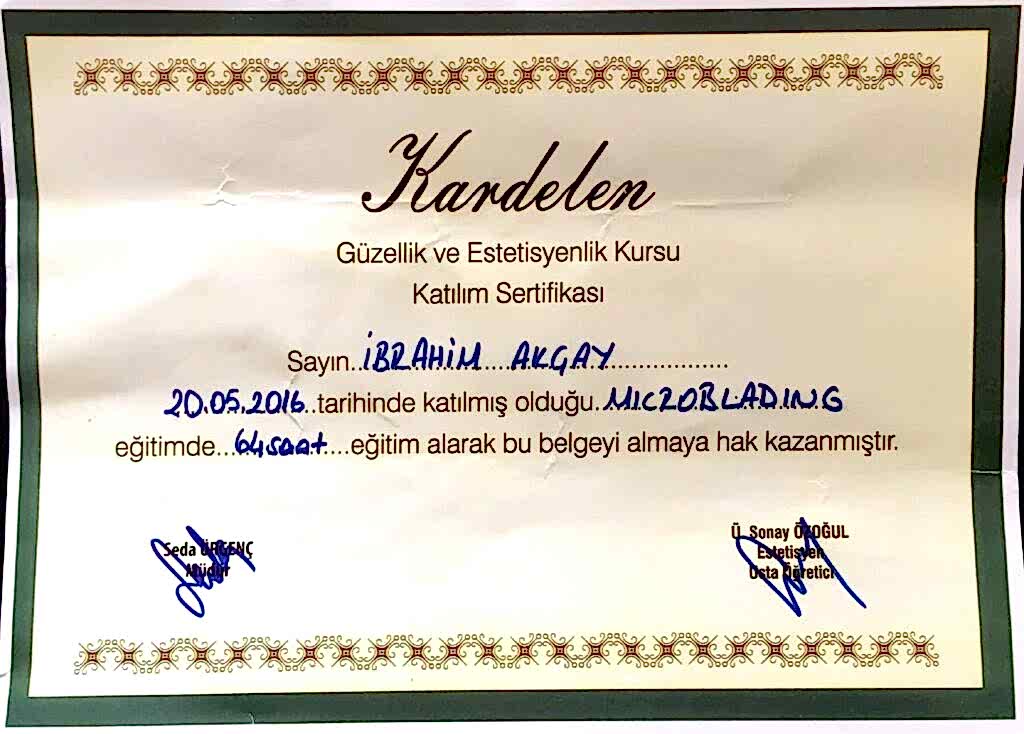 Kardelen
Güzellik ve Estetisyenlik Kursu
Katılım Sertifikası
Sayın..İBRAHİM AKGAY................
20.05.2016..tarihinde katılmış olduğu..MICROBLADING
eğitimde...64 saat....eğitim alarak bu belgeyi almaya hak kazanmıştır.
Seda ÜRGENÇ
Müdür
Ü. Sonay ÖZOĞUL
Estetisyen
Usta Öğretici